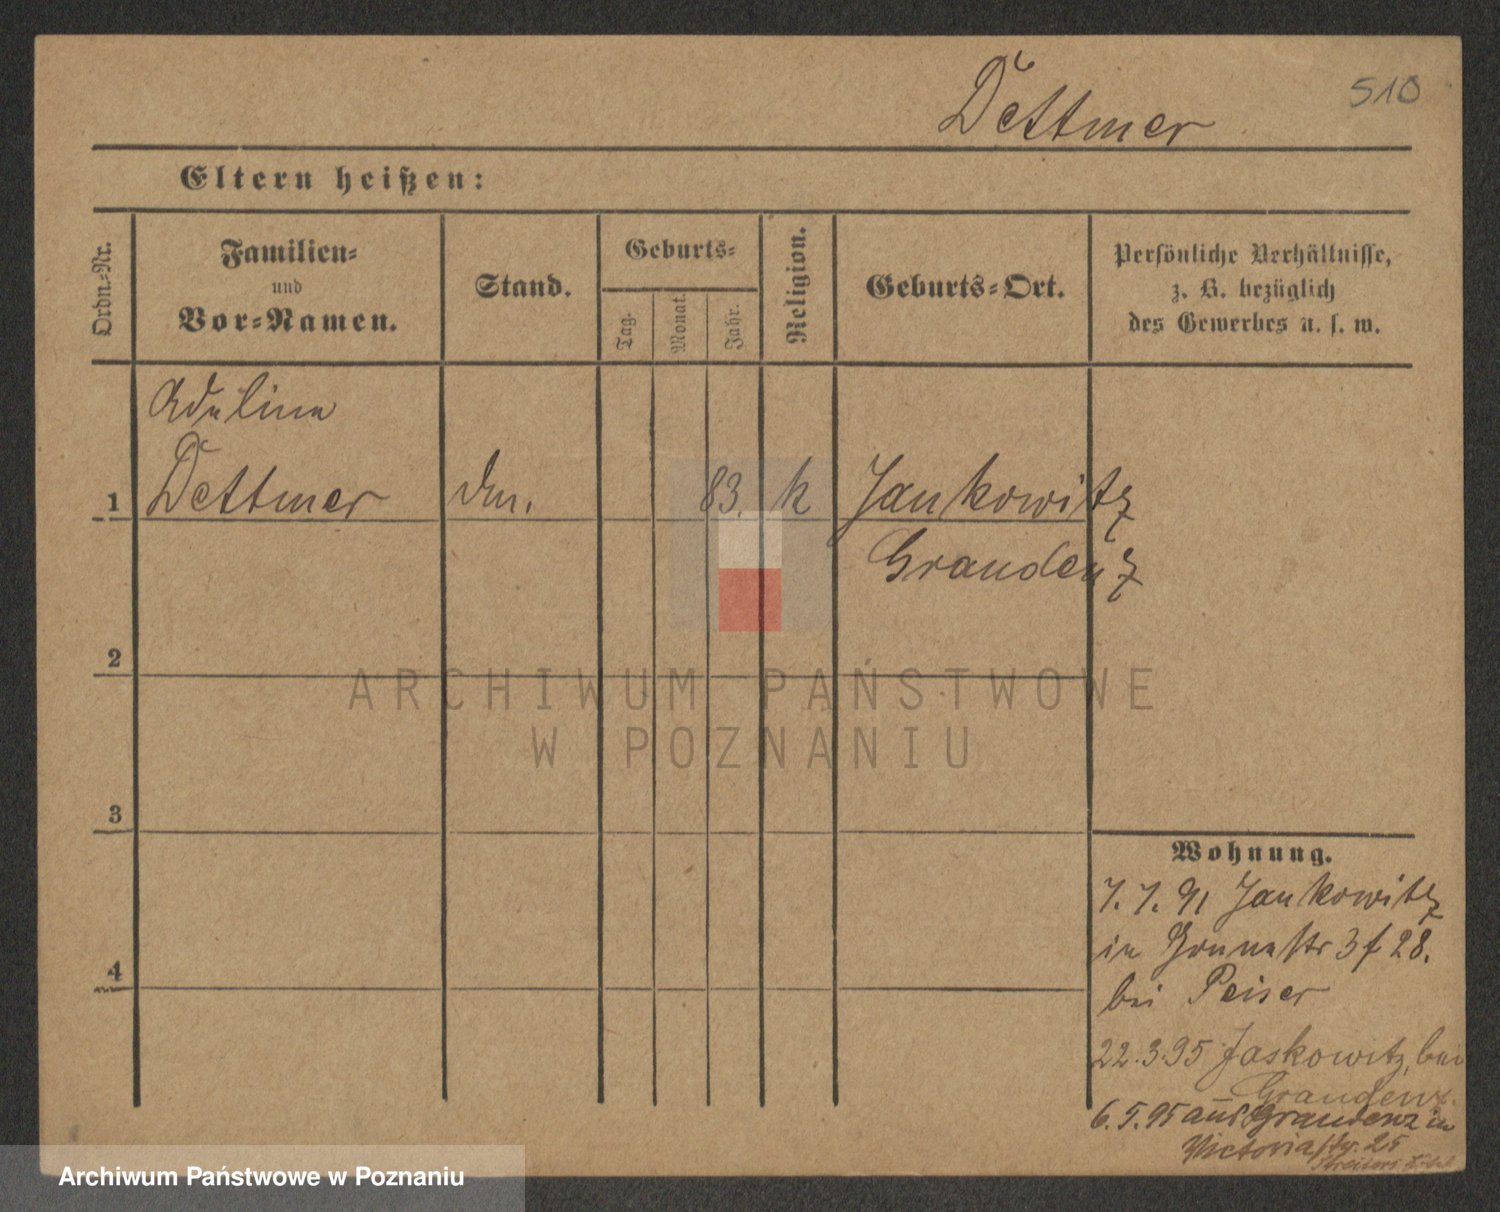 510
Dettmer
Eltern heißen:
Ordn.-Nr.
Familien-
und
Vor-Namen.
Stand.
Geburts-
Tag.
Monat.
Jahr.
Religion.
Geburts-Ort.
Persönliche Verhältnisse,
z. B. bezüglich
des Gewerbes u. s. w.
Adeline
1 Dettmer 83. k Jankowitz
Graudenz
2
3
4
ARCHIWUM PAŃSTWOWE
W POZNANIU
Wohnung.
7. 7. 91 Jankowitz
in 28.
bei Peiser
22.3.95 Jaskowitz, bei
Graudenz.
6. 5. 95 aus Graudenz in
Victoriastr. 25
Archiwum Państwowe w Poznaniu